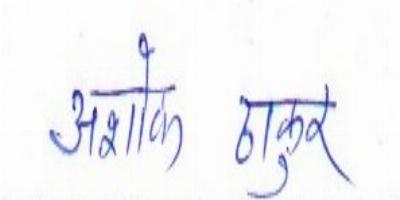 अशोक ठाकुर